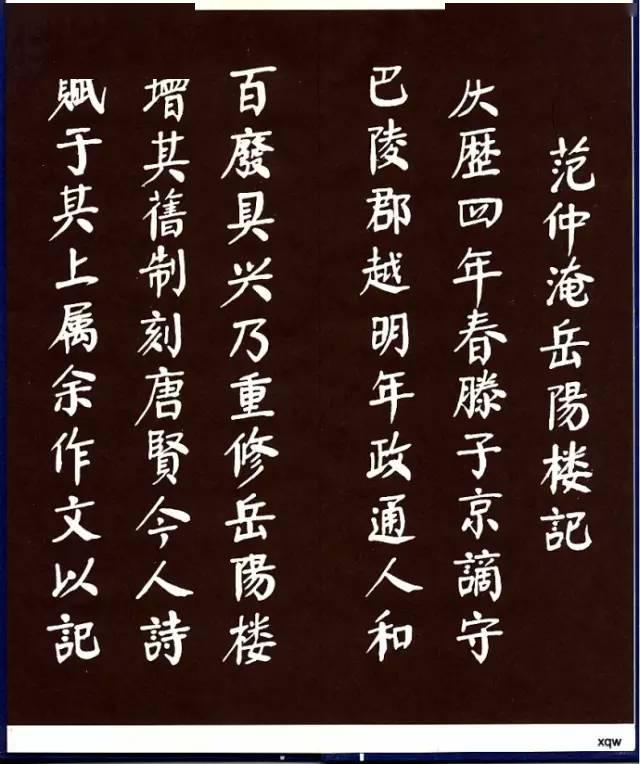 范仲淹岳陽楼記
庆歴四年春滕子京謫守
巴陵郡越明年政通人和
百廢具兴乃重修岳陽楼
增其舊制刻唐賢今人詩
賦于其上属余作文以記
xqw